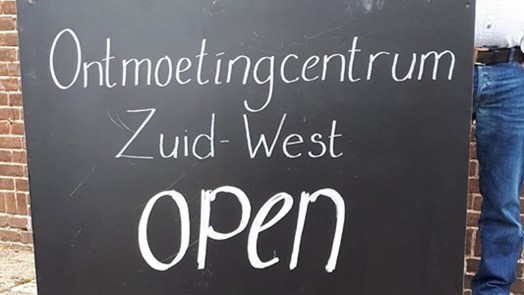 Ontmoetingcentrum
Zuid-West
open